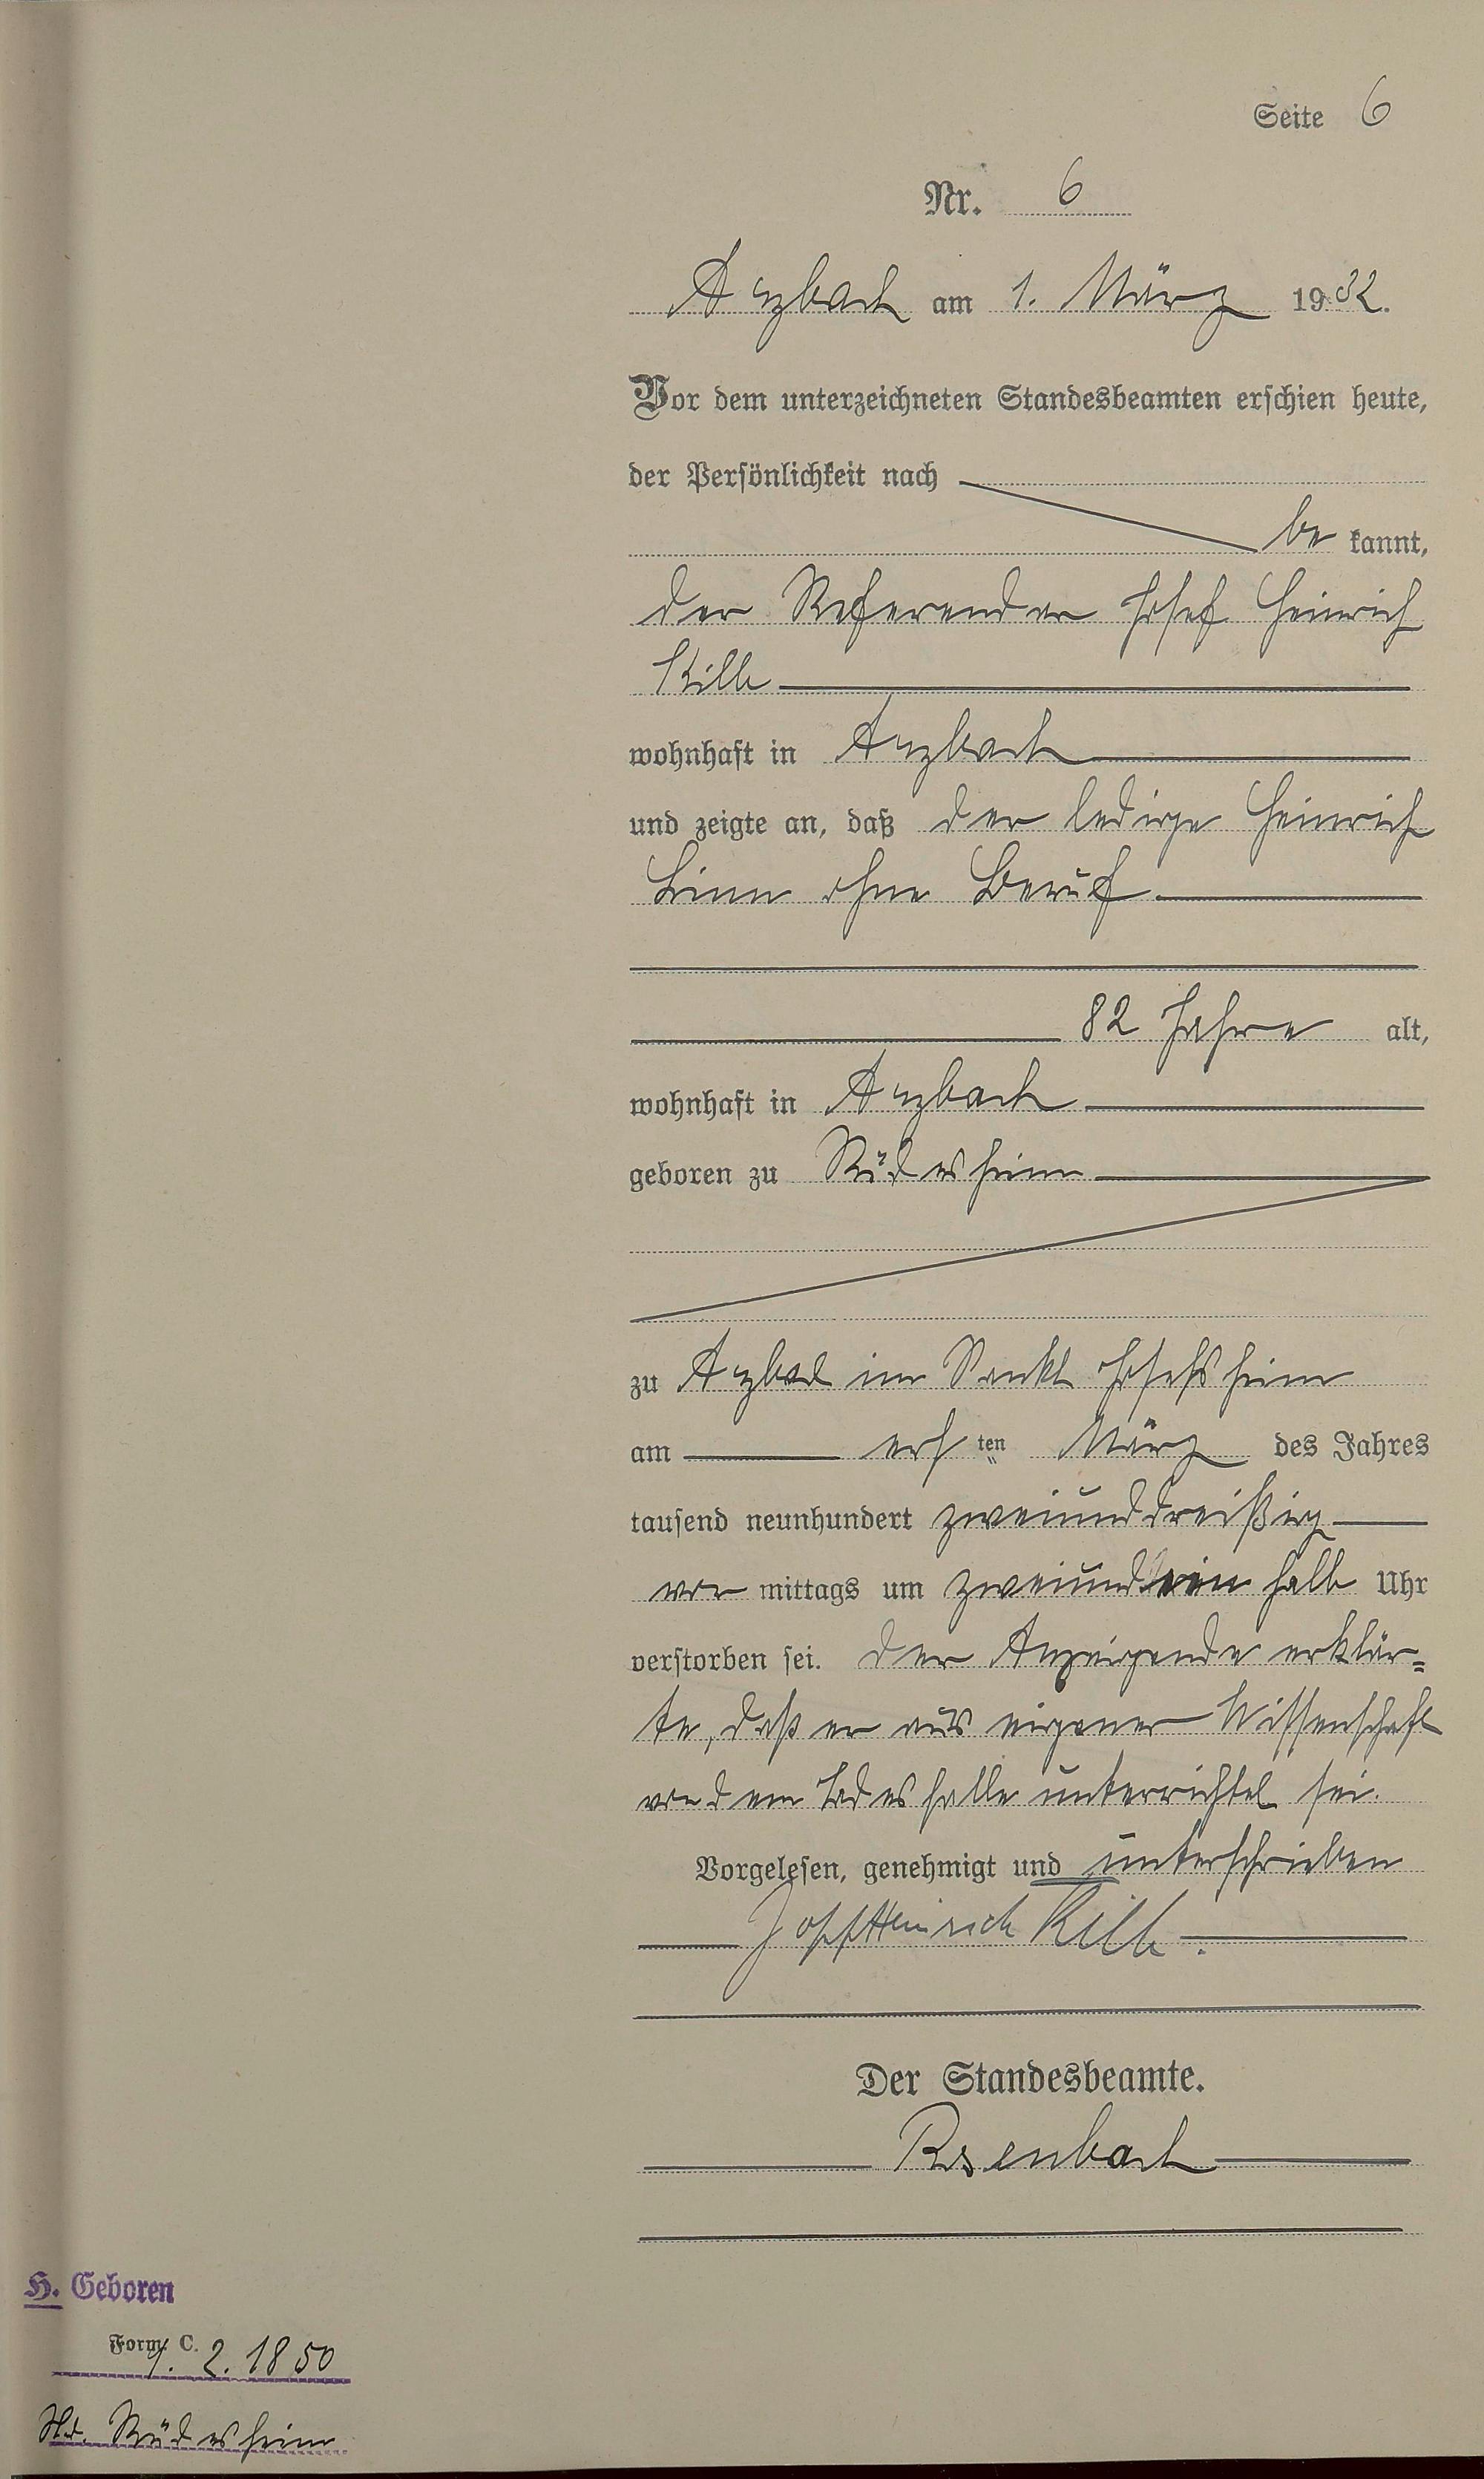 Seite 6
Nr. 6
Arzbach am 1. März 1932.
Vor dem unterzeichneten Standesbeamten erschien heute,
der Persönlichkeit nach
be kannt,
der Referendar Josef Heinrich
Kilb
wohnhaft in Arzbach
und zeigte an, daß der ledige Heinrich
Linn ohne Beruf
82 Jahre alt,
wohnhaft in Arzbach
geboren zu Rüdesheim
zu Arzbach im Sankt Josefsheim
am ersten März des Jahres
tausend neunhundert zweiunddreißig
vor mittags um zweiundein halb Uhr
verstorben sei. Der Anzeigende erklär=
te, daß er aus eigener Wissenschaft
von dem Todesfalle unterrichtet sei.
Vorgelesen, genehmigt und unterschrieben
Josef Heinrich Kilb.
Der Standesbeamte.
Rosenbach
H. Geboren
Form. C.
1. 2. 1850
Rüdesheim